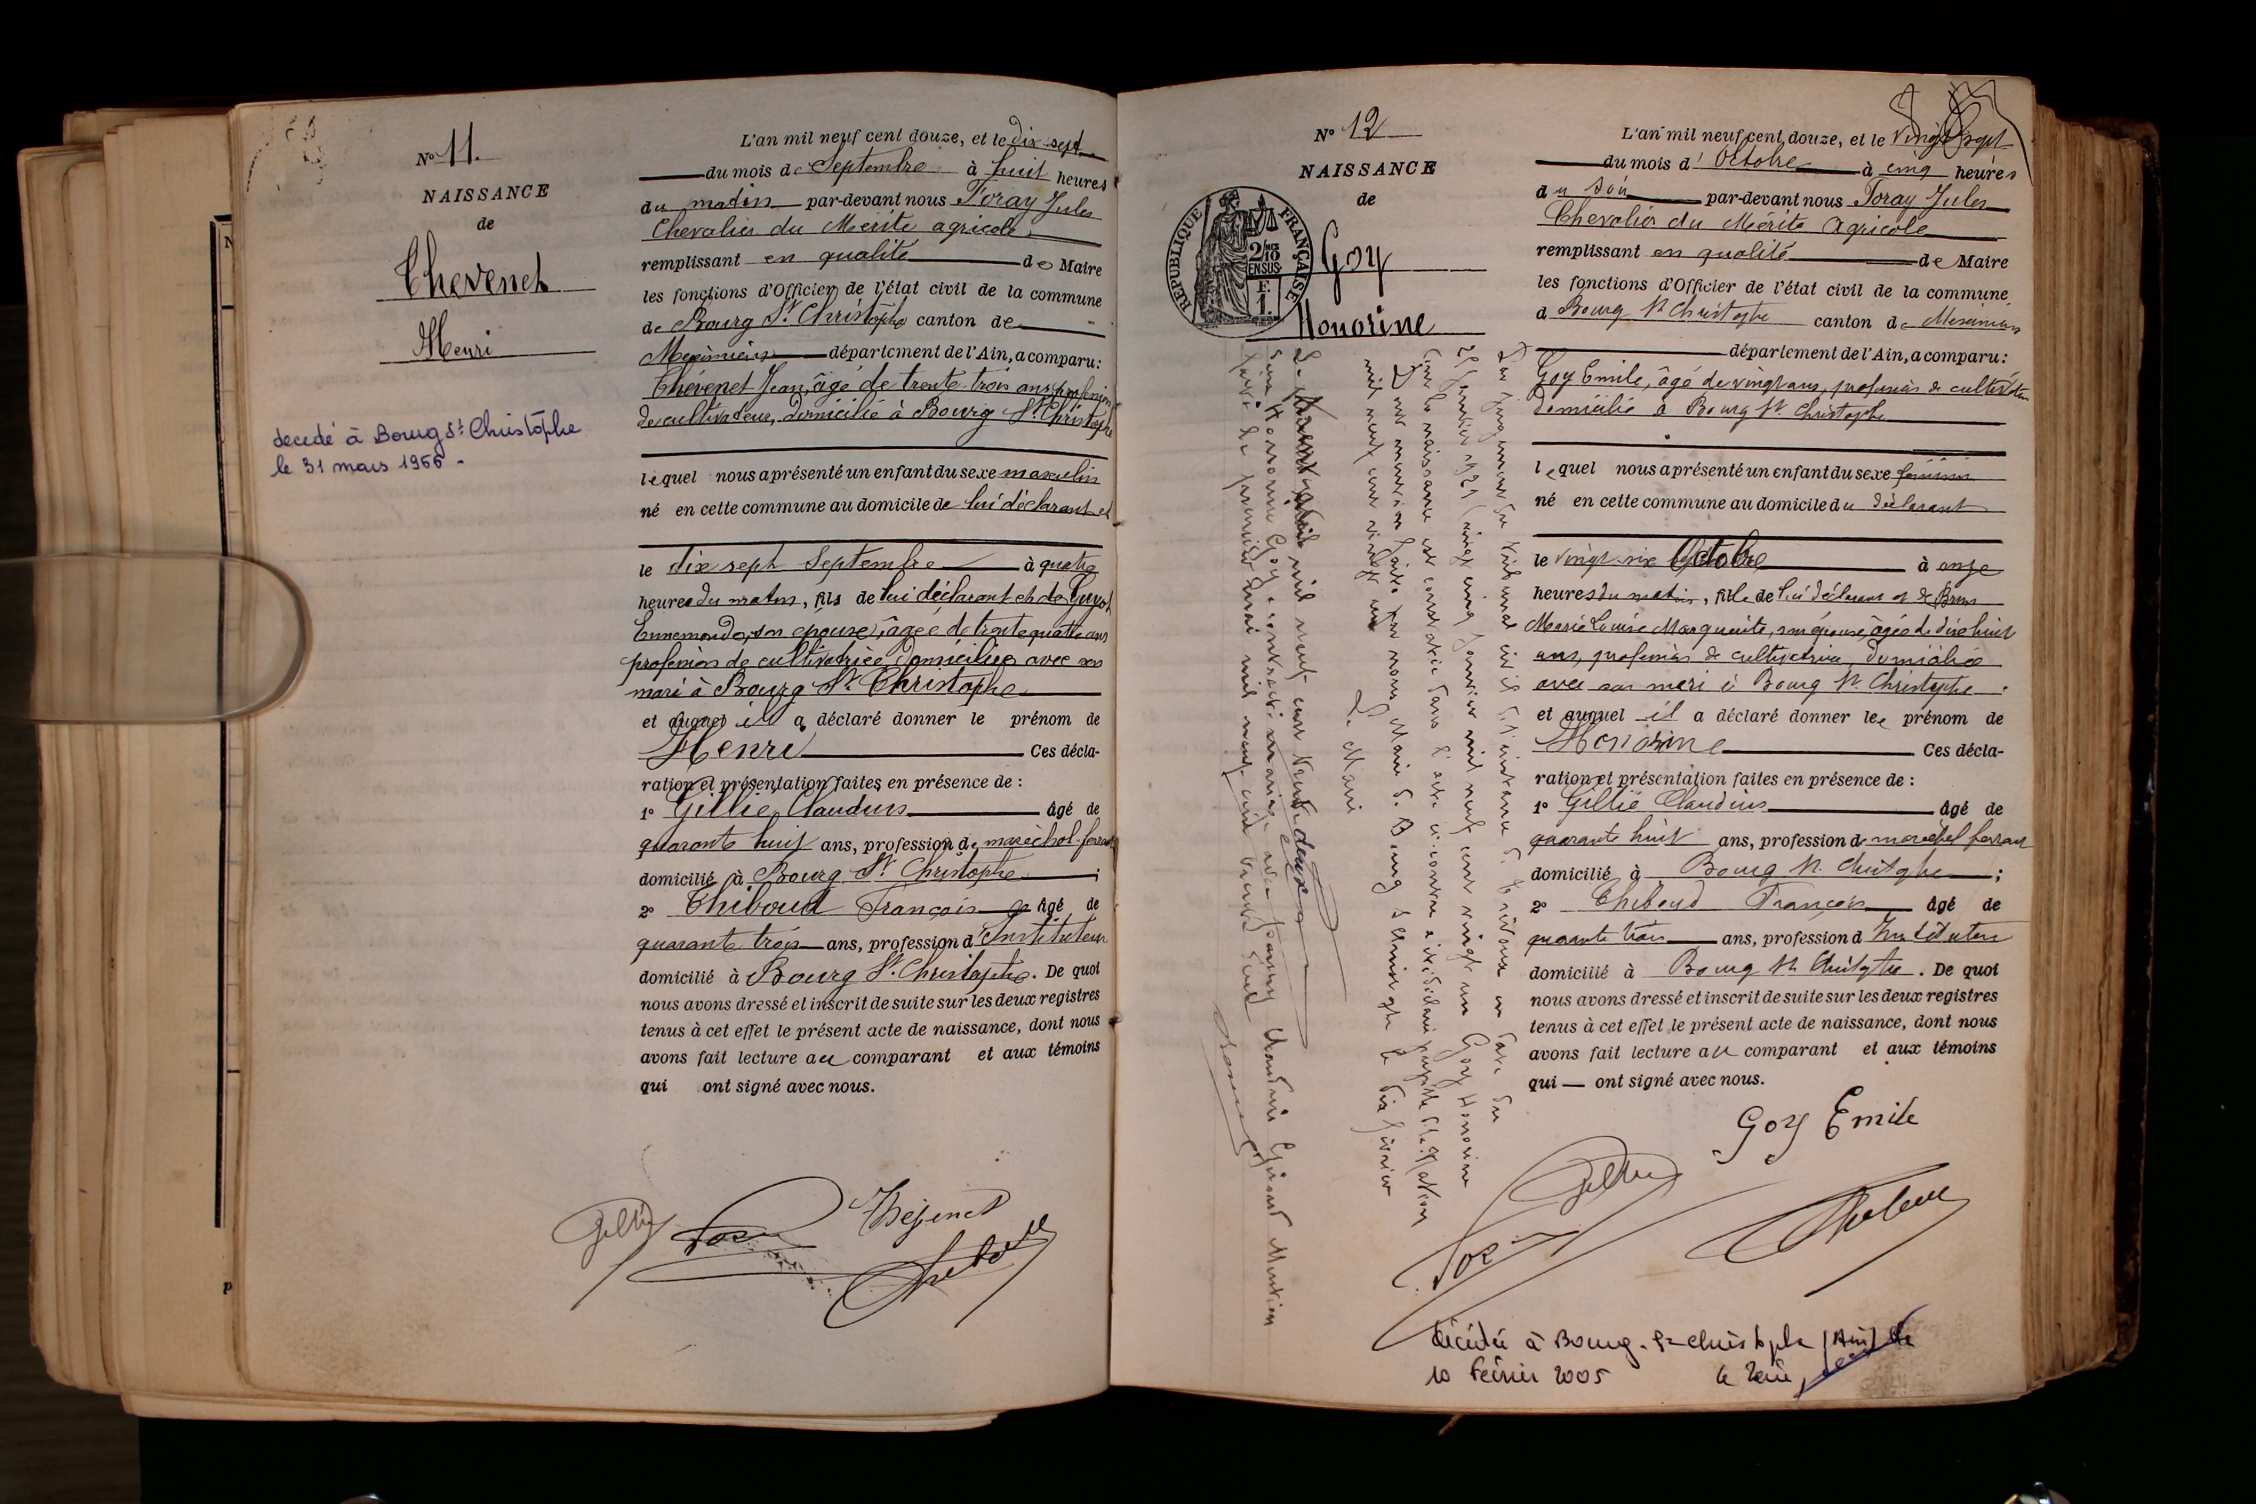 N° 11.
NAISSANCE
de
Thevenet
Henri
décédé à Bourg St Christôphe
le 31 mars 1966 -
L'an mil neuf cent douze, et le dix-sept
du mois de Septembre à huit heures
du matin par-devant nous Foray Jules
Chevalier du Mérite agricole
remplissant en qualité de Maire
les fonctions d'Officier de l'état civil de la commune
de Bourg St Christophe canton de
Meximieux département de l'Ain, a comparu:
Thévenet Jean, âgé de trente-trois ans profession
de cultivateur, domicilié à Bourg St Christophe
lequel nous a présenté un enfant du sexe masculin
né en cette commune au domicile de lui déclarant et
le dix sept Septembre à quatre
heures du matin, fils de lui déclarant et de Guyot
Ennemonde, son épouse, âgée de trente quatre ans
profession de cultivatrice, domiciliée avec son
mari à Bourg St Christophe
et auquel il a déclaré donner le prénom de
Henri Ces décla-
ration et présentation faites en présence de :
1° Gillié Claudius âgé de
quarante huit ans, profession de maréchal-ferrant
domicilié à Bourg St Christophe ;
2° Thiboud François âgé de
quarante trois ans, profession d'Instituteur
domicilié à Bourg St Christophe. De quoi
nous avons dressé et inscrit de suite sur les deux registres
tenus à cet effet le présent acte de naissance, dont nous
avons fait lecture au comparant et aux témoins
qui ont signé avec nous.
Thévenet
N° 12
NAISSANCE
de
RÉPUBLIQUE FRANÇAISE
2/10
EN SUS
F.
1.
Goy
Honorine
Par jugement du tribunal civil de Trévoux en date du
25 Janvier 1921 (vingt cinq Janvier mil neuf cent vingt un Goy Honorine
dont la naissance est constatée dans l'acte ci-contre a été déclarée pupille de la Nation
Dont mention faite par nous Maire de Bourg St Christophe le dix février
mil neuf cent vingt un
Le Maire
mil neuf cent trente deux
Honorine Goy a contracté mariage avec Girard Mention
faite le premier mil neuf cent trente deux
L'an mil neuf cent douze, et le vingt sept
du mois d'Octobre à cinq heures
du soir par-devant nous Foray Jules
Chevalier du Mérite Agricole
remplissant en qualité de Maire
les fonctions d'Officier de l'état civil de la commune
d Bourg St Christophe canton de Meximieux
département de l'Ain, a comparu:
Goy Emile, âgé de vingt ans, profession de cultivateur
domicilié à Bourg St Christophe
lequel nous a présenté un enfant du sexe féminin
né en cette commune au domicile du déclarant
le vingt-six Octobre à onze
heures du matin, fille de lui déclarant et de
Marie Louise Marguerite, son épouse, âgée de dix huit
ans, profession de cultivatrice, domiciliée
avec son mari à Bourg St Christophe
et auquel il a déclaré donner le prénom de
Honorine Ces décla-
ration et présentation faites en présence de :
1° Gillié Claudius âgé de
quarante huit ans, profession de maréchal ferrant
domicilié à Bourg St Christophe ;
2° Thiboud François âgé de
quarante trois ans, profession d Instituteur
domicilié à Bourg St Christophe. De quoi
nous avons dressé et inscrit de suite sur les deux registres
tenus à cet effet le présent acte de naissance, dont nous
avons fait lecture au comparant et aux témoins
qui ont signé avec nous.
Goy Emile
décédée à Bourg-St-Christophe (Ain) le
10 Février 2005 le Maire,